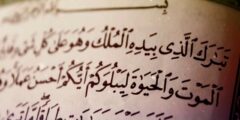 بِسْ
تَبَٰرَكَ ٱلَّذِى بِيَدِهِ ٱلْمُلْكُ وَهُوَ عَلَىٰ كُلِّ شَىْءٍ
ٱلْمَوْتَ وَٱلْحَيَوٰةَ لِيَبْلُوَكُمْ أَيُّكُمْ أَحْسَنُ عَمَلًا
سَمَٰوَٰتٍ طِبَاقًا مَّا